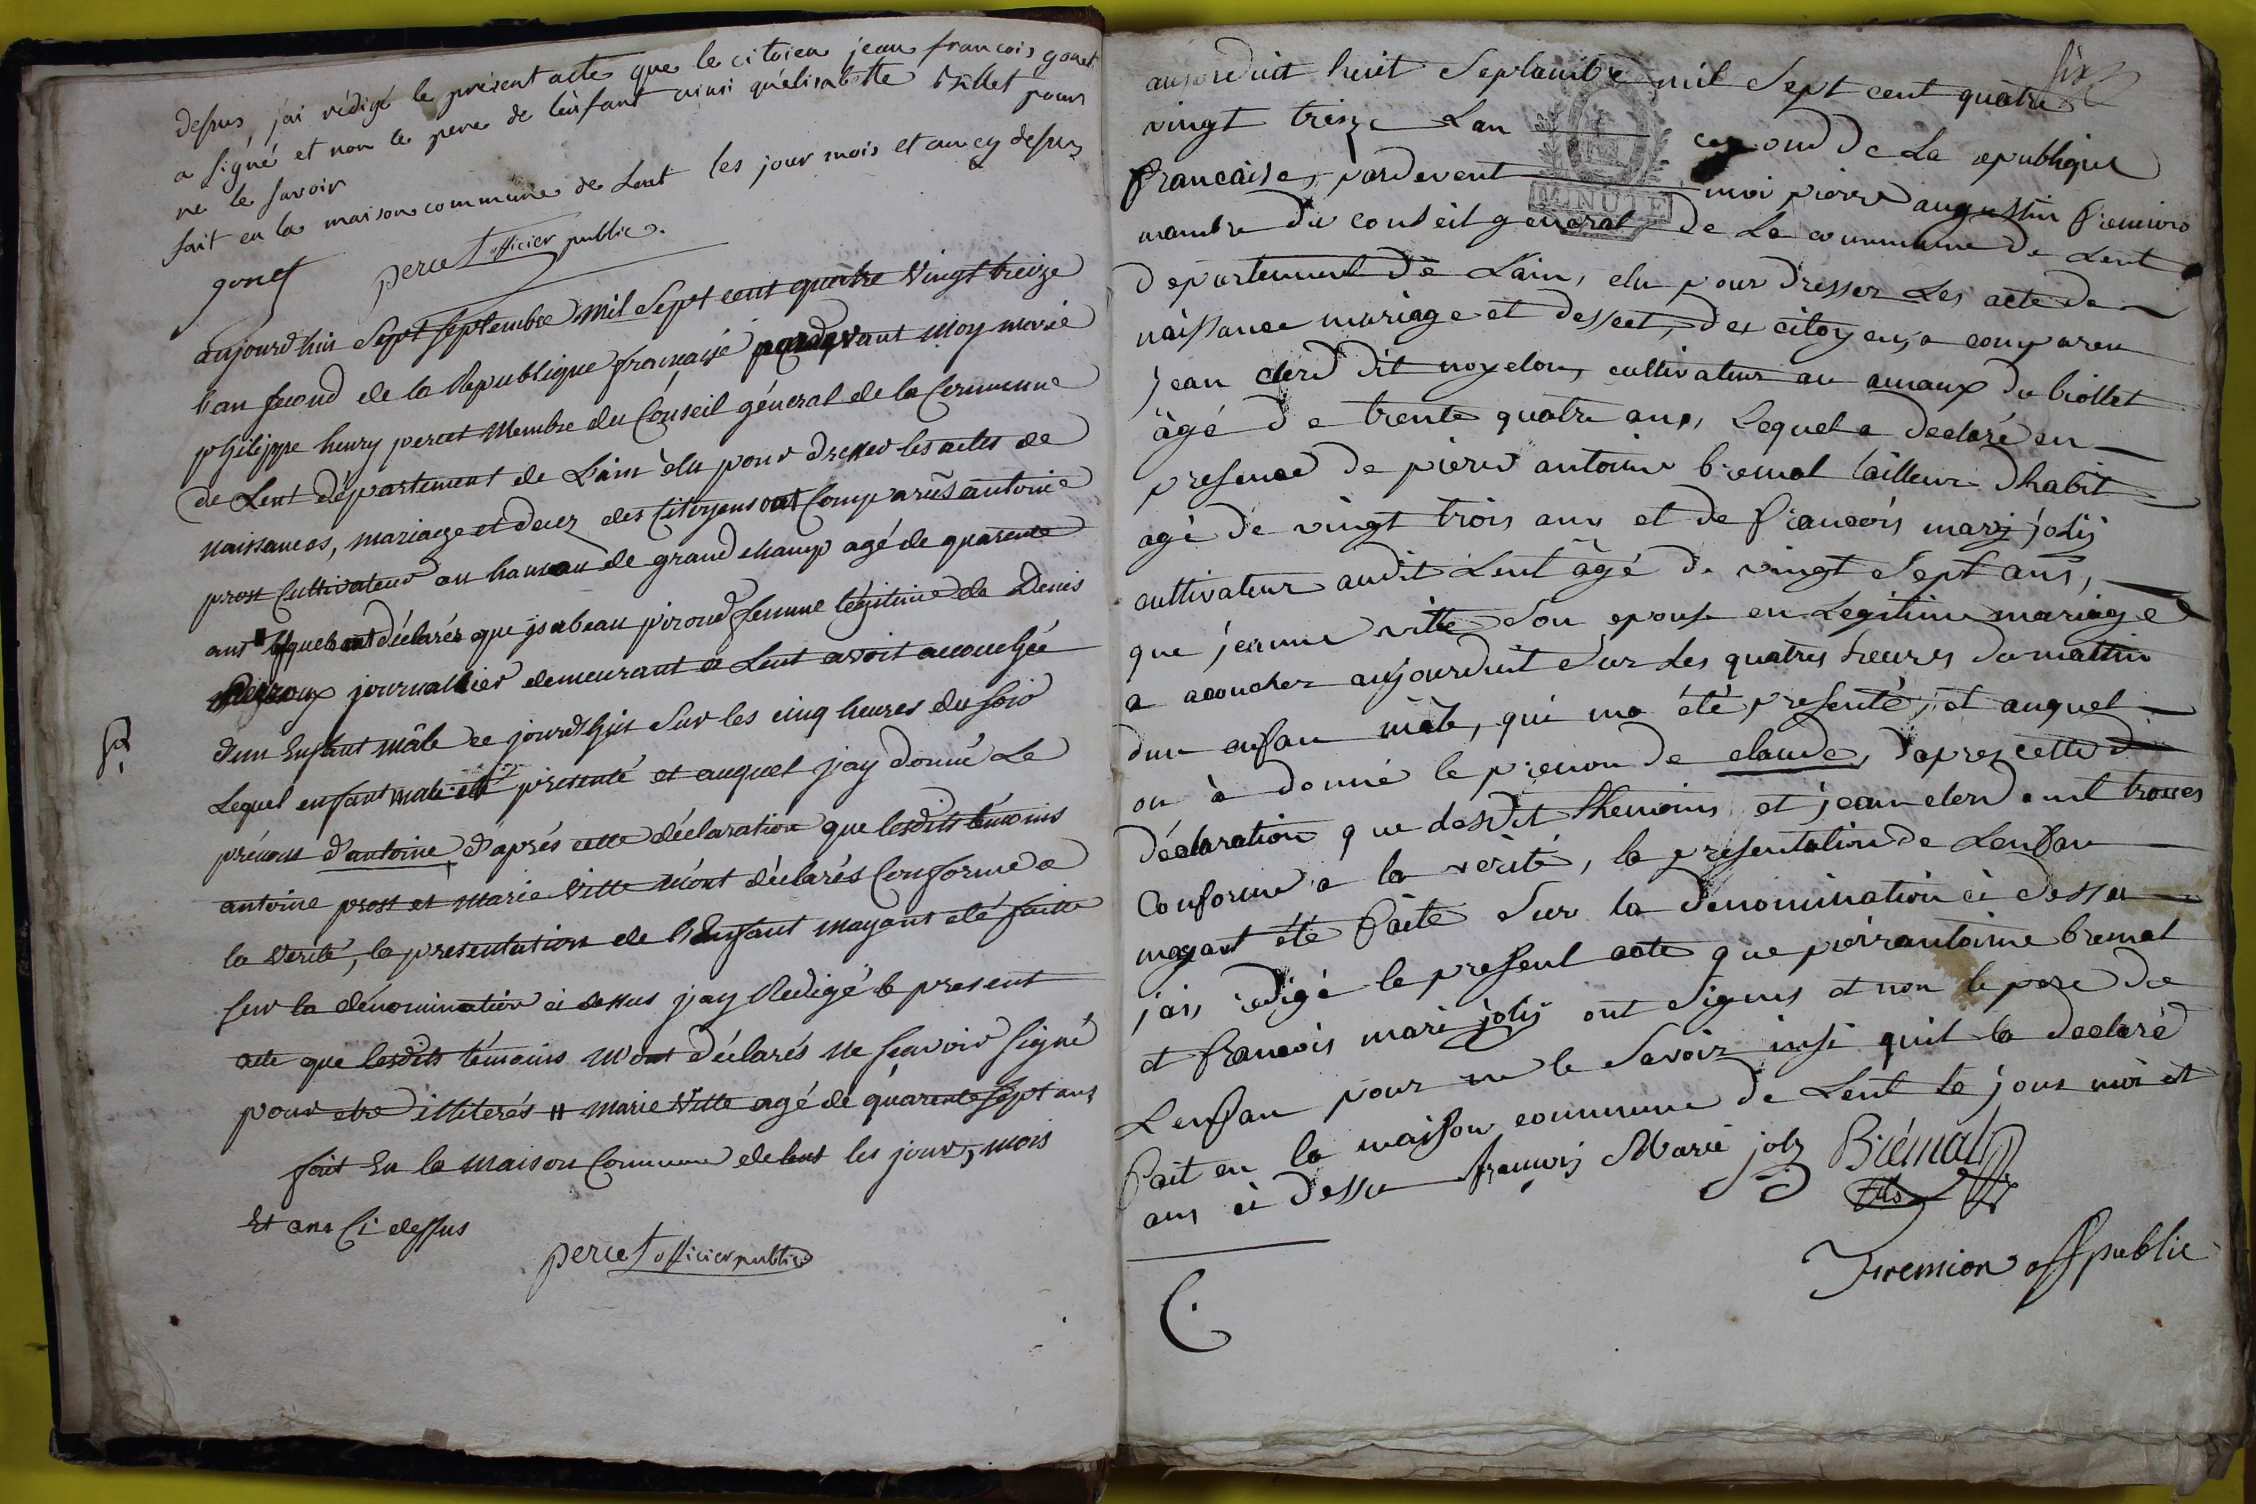 dessus, j'ai rédigé le présent acte que le citoien jean francois gonet
a signé et non le pere de l'enfant ainsi qu'elisabette Villet pour
ne le savoir
fait en la maison commune de Lent les jour mois et an cy dessus
gonet percet officier public.
aujourdhui Sept Septembre mil Sept cent quatre Vingt treize
l'an second de la Republique francaise pardevant Moy marie
philippe henry percet Membre du Conseil géneral de la Commune
de Lent département de L'ain èlu pour dresser les actes de
naissances, mariage et decez des Citoyens ont Comparus antoine
prost Cultivateur au hameau de grand champ agé de quarente
ans # lesquels ont déclarés que jsabeau piroud femme légitime de Denis
journallier demeurant a Lent avoit accouchée
d'un Enfant mâle ce jourd'hui Sur les cinq heures du soir
Lequel enfant mate été présenté et auquel j'ay donné Le
prénom d'antoine, d'aprés cette déclaration que lesdits témoins
antoine prost et Marie Vitte m'ont déclarés Conforme a
la Verité, la presentation de l'Enfant mayant été faitte
sur la dénomination ci dessus j'ay Redigé le present
acte que lesdits témoins m'ont déclarés ne scavoir signé
pour etre illiterés # Marie Vitte agé de quarente sept ans
fait En la Maison Commune de lent les jour, mois
Et ans Ci dessus
percet officier public
six
aujourduit huit Septambre mil Sept cent quatre
vingt treize Lan cegond de La republique
francaise, pardevent moi pierre augustin fremion
MINUTE
mambre du conseil general de La commune de Lent
departement de L'ain, elu pour dresser Les acte de
naissance mariage et desset, des citoyens, a compareu
jean clerd dit noyelon, cultivateur au amaux du biollet
àgé de trente quatre ans, Lequel a declaré en
presence de pierre antoine bremal tailleur dhabit
agé de vingt trois ans et de francois mari joly
cultivateur audit Lent âgé de vingt Sept ans,
que jeanne vitte Son epouse en Legitime mariage
a acoucher aujourduit Sur Les quatres heures du mattin
dun enfan mâle, qui ma été presenté, et auquel
on à donné le prenon de claude, dapres cette
déclaration que desdit themoins et jean clerd ont trouves
Conforme a la verité, la presentation de Lenfan
mayant été faite Sur la denomination ci dessu
j'ais redigé le present acte que pierrantoine bremal
et francois mari joly ont Signes et non le pere de
Lenfan pour ne le Savoir insi quil la declaré
fait en la maison commune de Lent le jour moi et
ans ci dessu francois Marie joly Brémal
fils
fremion off public
C.